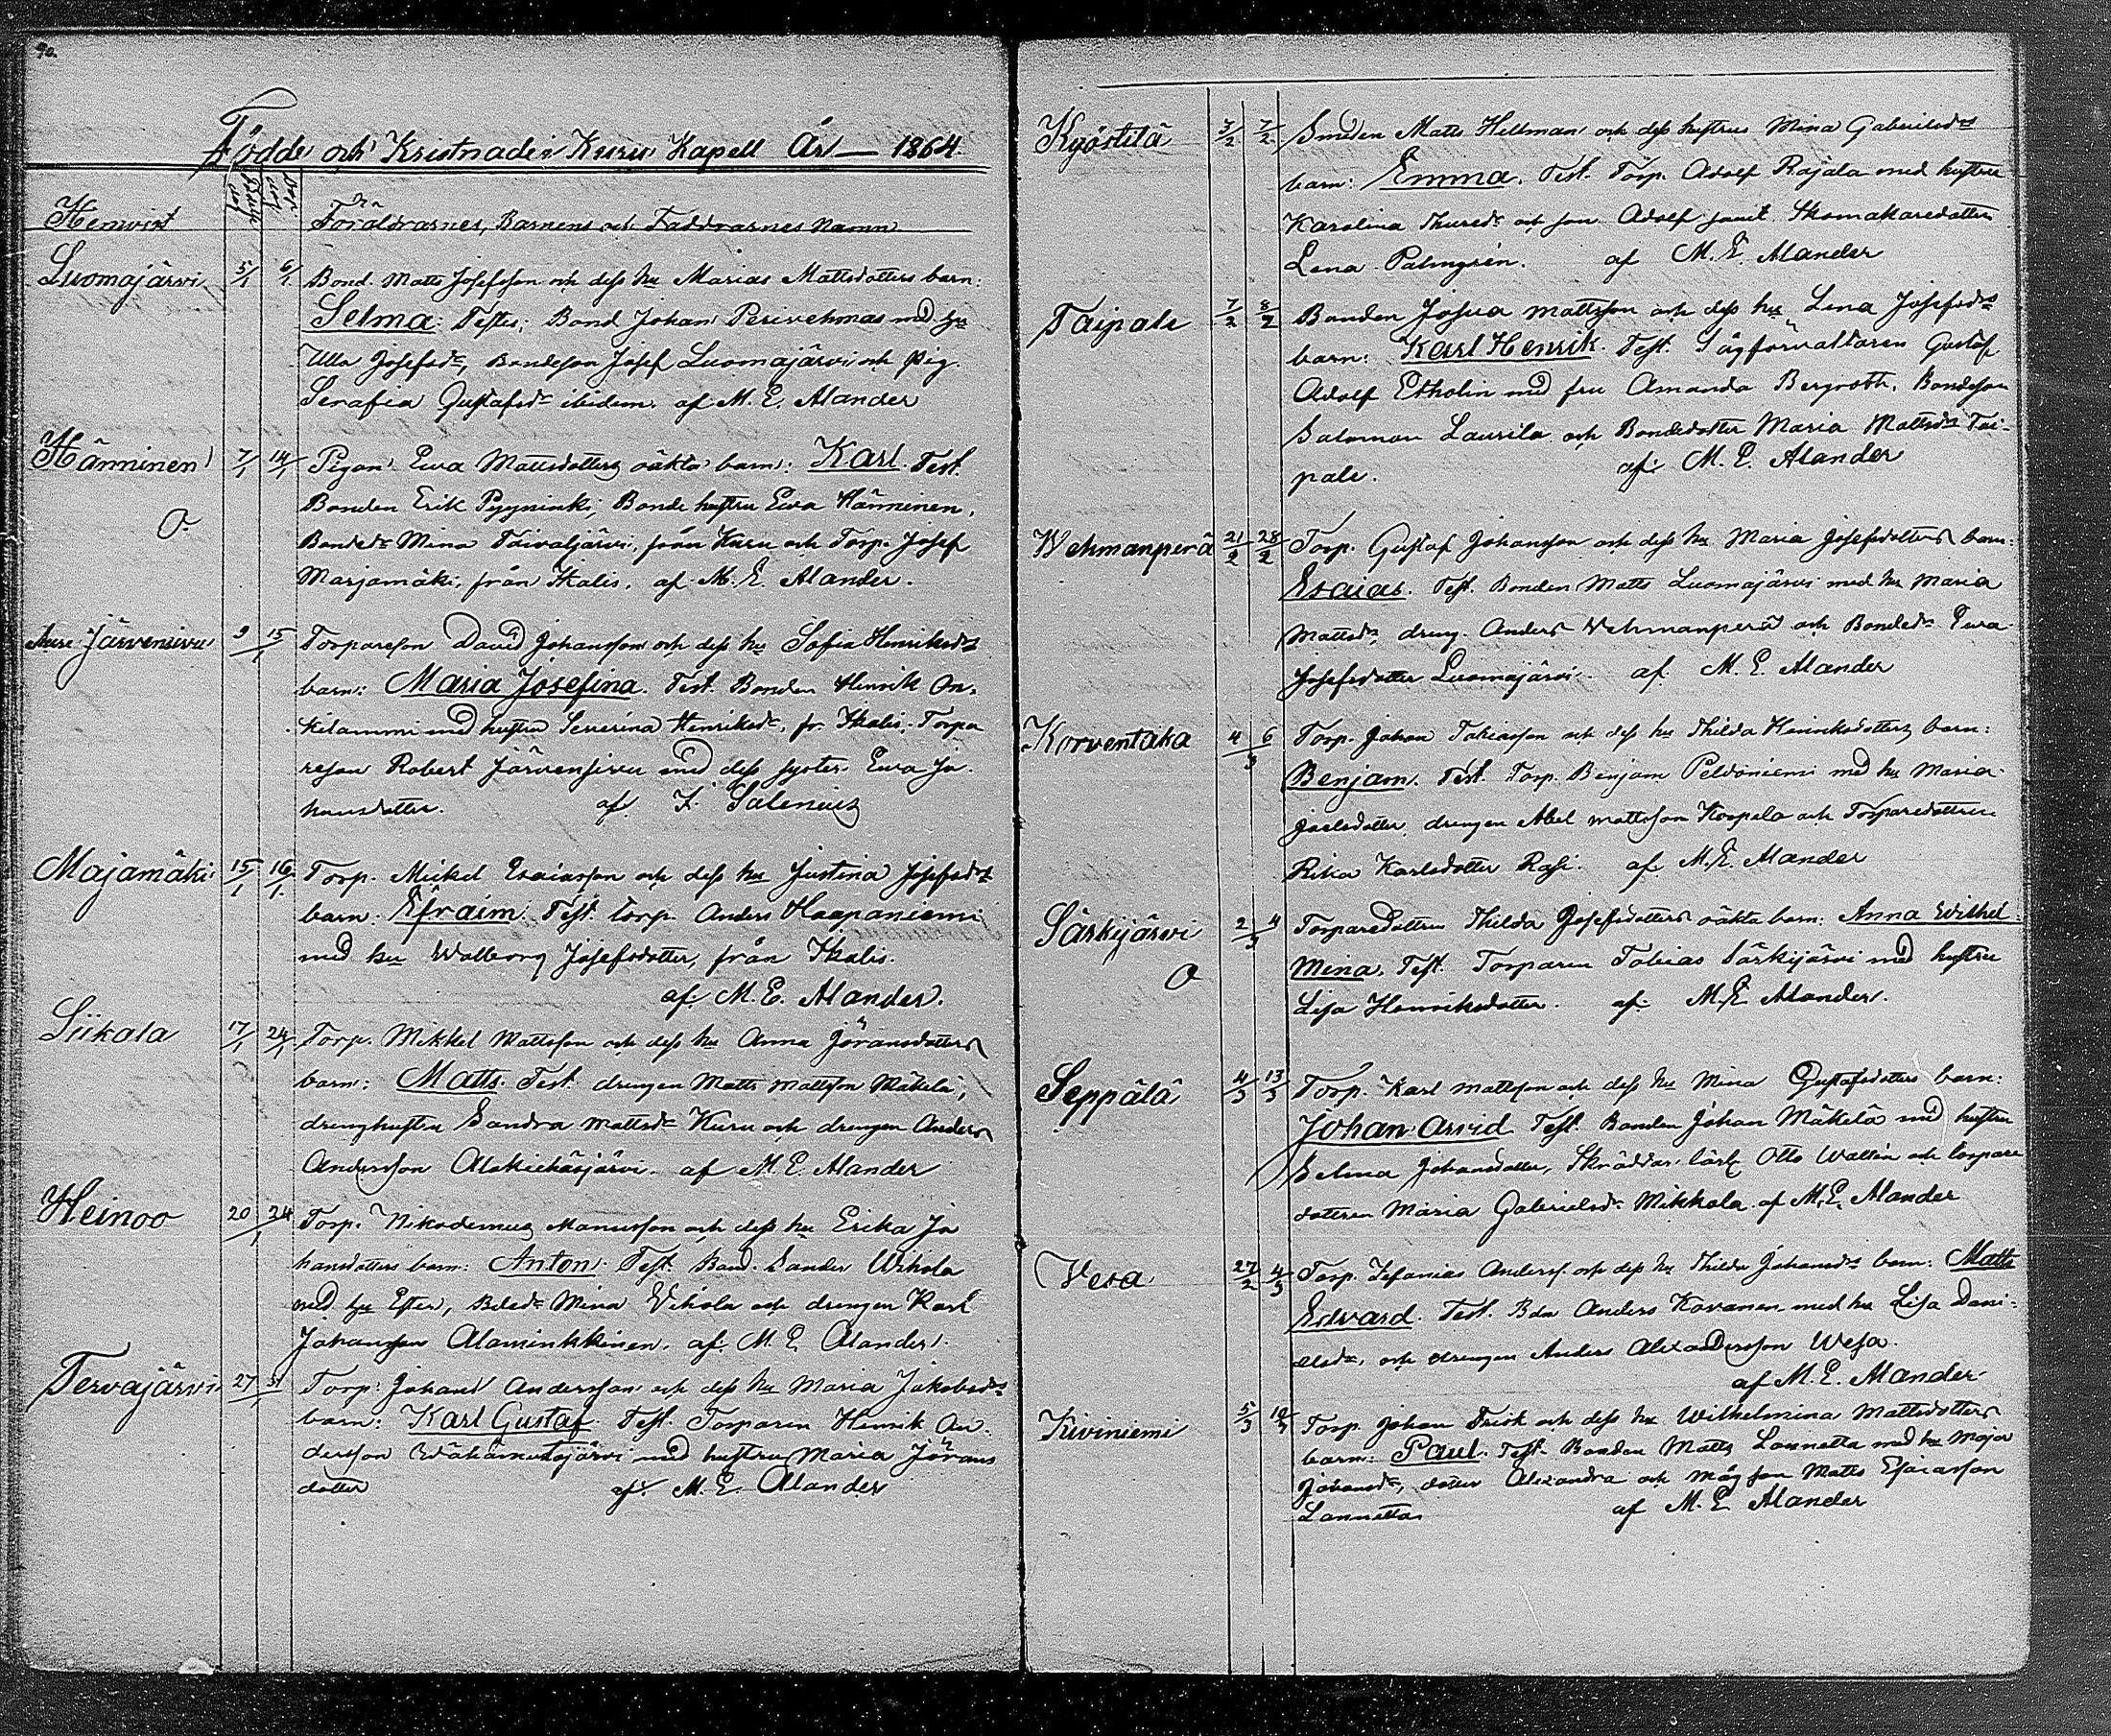 90.
Födde och Kristnade i Kuru Kapell År — 1864
Hemvist Föräldrarnes, Barnens och Faddrarnes Namn
Luomajärvi 5/1 6/1 Bond. Matts Josefsson och dess hu Marias Mattsdotters barn:
Selma. Testes; Bond Johan Perivehmas med hu
Ulla Josefsdr, Bondeson Josef Luomajärvi och Pig.
Serafia Gustafsdr ibidem. af M. E. Alander
Hänninen 7/1 14/1 Pigan Ewa Mattsdotters oäkta barn: Karl. Test.
Bonden Erik Pyyninki, Bonde hustru Ewa Hänninen,
O. Bondedr Mina Taivaljärvi, från Kuru och Torp. Josef
Marjamäki, från Ikalis, af M. E. Alander.
Aure Järvensivu 9 15/1 Torpareson David Johansson och dess hu Sofia Henriksdrs
barn: Maria Josefina. Test. Bonden Henrik On-
kilammi med hustru Severina Henriksdr, fr. Ikalis, Torpa
reson Robert Järvensivu med dess syster Ewa Jo
hansdotter. af F. Salenius
Majamäki 15/1 16/1 Torp. Mickel Esaiasson och dess hu Justina Josefsdrs
barn: Efraim. Test. torp. Anders Haapaniemi
med hu Walborg Josefsdotter, från Ikalis.
af M. E. Alander.
Siikala 17/1 24/1 Torp. Mikkel Mattsson och dess hu Anna Göransdotters
barn: Matts. Test. drengen Matts Mattsson Mäkelä,
drenghustru Sandra Mattsdr Kuru och drengen Anders
Andersson Alakiehäsjärvi. af M. E. Alander
Heinoo 20 24/1 Torp. Nikodemus Manusson och dess hu Erika Jo
hansdotters barn: Anton. Test. Bond. Sander Wihola
med hu Ester, Bdedr Mina Wihola och drengen Karl
Johansson Alaminkkinen. af M. E. Alander.
Tervajärvi 27 31/1 Torp. Johan Andersson och dess hu Maria Jakobsdrs
barn: Karl Gustaf. Test. Torparen Henrik An-
dersson med hustru Maria Jörans
dotter af M. E. Alander
Kyöstilä 3/2 7/2 Smeden Matts Hellman och dess hustrus Mina Gabrielsdrs
barn: Emma. Test. Torp. Adolf Rajala med hustru
Karolina Thuredr och son Adolf samt Skomakaredottern
Lena Palmgrén. af M. E. Alander
Taipale 7/2 8/2 Bonden Josua Mattsson och dess hu Lena Josefsdrs
barn: Karl Henrik. Test. Sågförvaltaren Gustaf
Adolf Etholin med fru Amanda Bergroth, Bondeson
Salomon Laurila och Bondedotter Maria Mattsdr Tai-
pale. af M. E. Alander
Wehmanperä 21/2 28/2 Torp. Gustaf Johansson och dess hu Maria Josefsdotters barn:
Esaias. Test. Bonden Matts Luomajärvi med hu Maria
Mattsdr, dreng. Anders Wehmanperä och Bondedr Ewa
Josefsdotter Luomajärvi. af M. E. Alander
Korventaka 4 6/3 Torp. Johan Tobiasson och dess hu Thilda Henriksdotters barn:
Benjam. Test. Torp. Benjam Peldoniemi med hu Maria
Joelsdotter, drengen Abel Mattsson Korpela och Torparedottren
Rika Karlsdotter Rasi. af M. E. Alander
Särkijärvi 2 4/3 Torparedottren Thilda Josefsdotters oäkta barn: Anna Wilhel-
O mina. Test. Torparen Tobias Särkijärvi med hustru
Lisa Henriksdotter. af M. E. Alander.
Seppälä 4/3 13/3 Torp. Karl Mattsson och dess hu Mina Gustafsdotters barn:
Johan Arvid. Test. Bonden Johan Mäkelä med hustru
Selma Johansdotter, Skräddar lärl. Otto Wallin och torpare
dottren Maria Gabrielsdr Mikkola. af M. E. Alander
Vesa 27/2 4/3 Torp. Sefanias Anderss. och dess hu Thilda Johansdrs barn: Matts
Edvard. Test. Bdn Anders Kovanen med hu Lisa Dani-
elsdr, och drengen Anders Alexandersson Wesa.
af M. E. Alander
Kiviniemi 5/3 10/3 Torp. Johan Frisk och dess hu Wilhelmina Mattsdotters
barn: Paul. Test. Bonden Matts Lannetta med hu Maja
Johansdr, dotter Alexandra och mågson Matts Esaiasson
Lannetta. af M. E. Alander